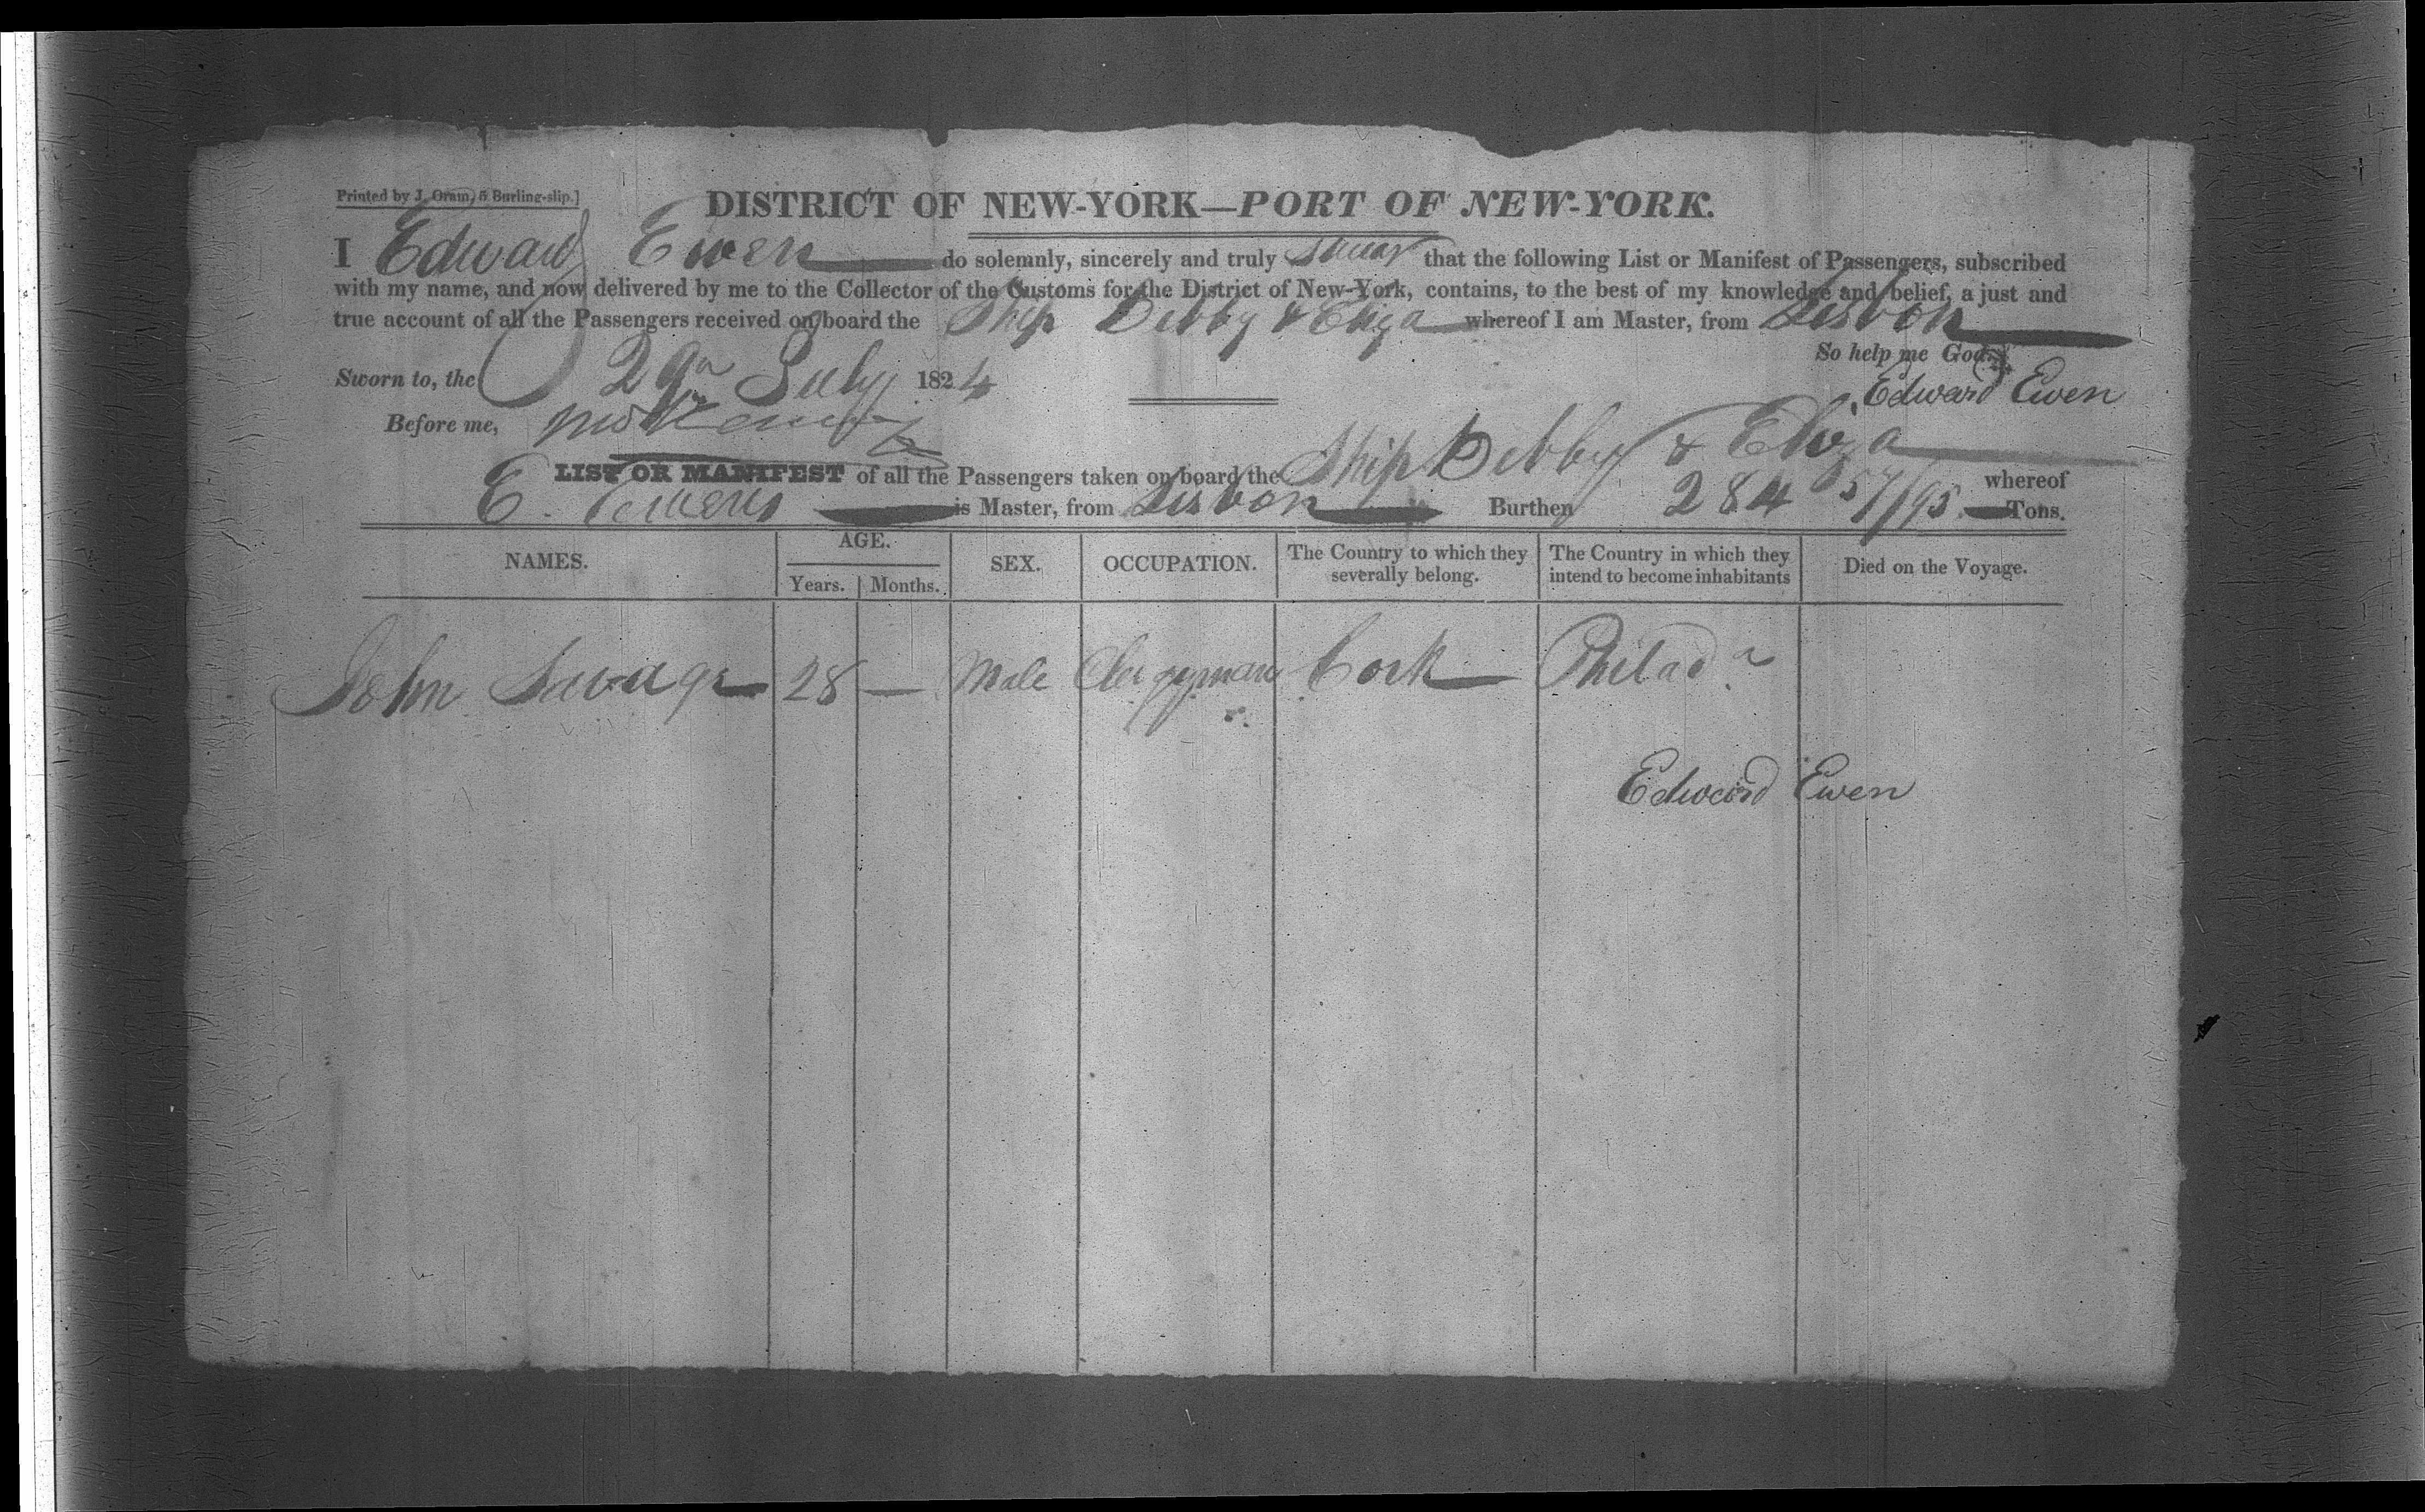 Printed by J. Oram, 5 Burling-slip.]
DISTRICT OF NEW-YORK—PORT OF NEW-YORK.
I Edward Ewen do solemnly, sincerely and truly swear that the following List or Manifest of Passengers, subscribed
with my name, and now delivered by me to the Collector of the Customs for the District of New-York, contains, to the best of my knowledge and belief, a just and
true account of all the Passengers received on board the Ship Debby & Eliza whereof I am Master, from Lisbon
So help me God.
Sworn to, the 29th July 1824
Edward Ewen
Before me,
LIST OR MANIFEST of all the Passengers taken on board the Ship Debby & Eliza whereof
E. Ewens is Master, from Lisbon Burthen 284 57/95 Tons.
NAMES. AGE. Years. Months. SEX. OCCUPATION. The Country to which they severally belong. The Country in which they intend to become inhabitants Died on the Voyage.
John Savage 28 — Male Clergyman Cork Philada
Edward Ewen